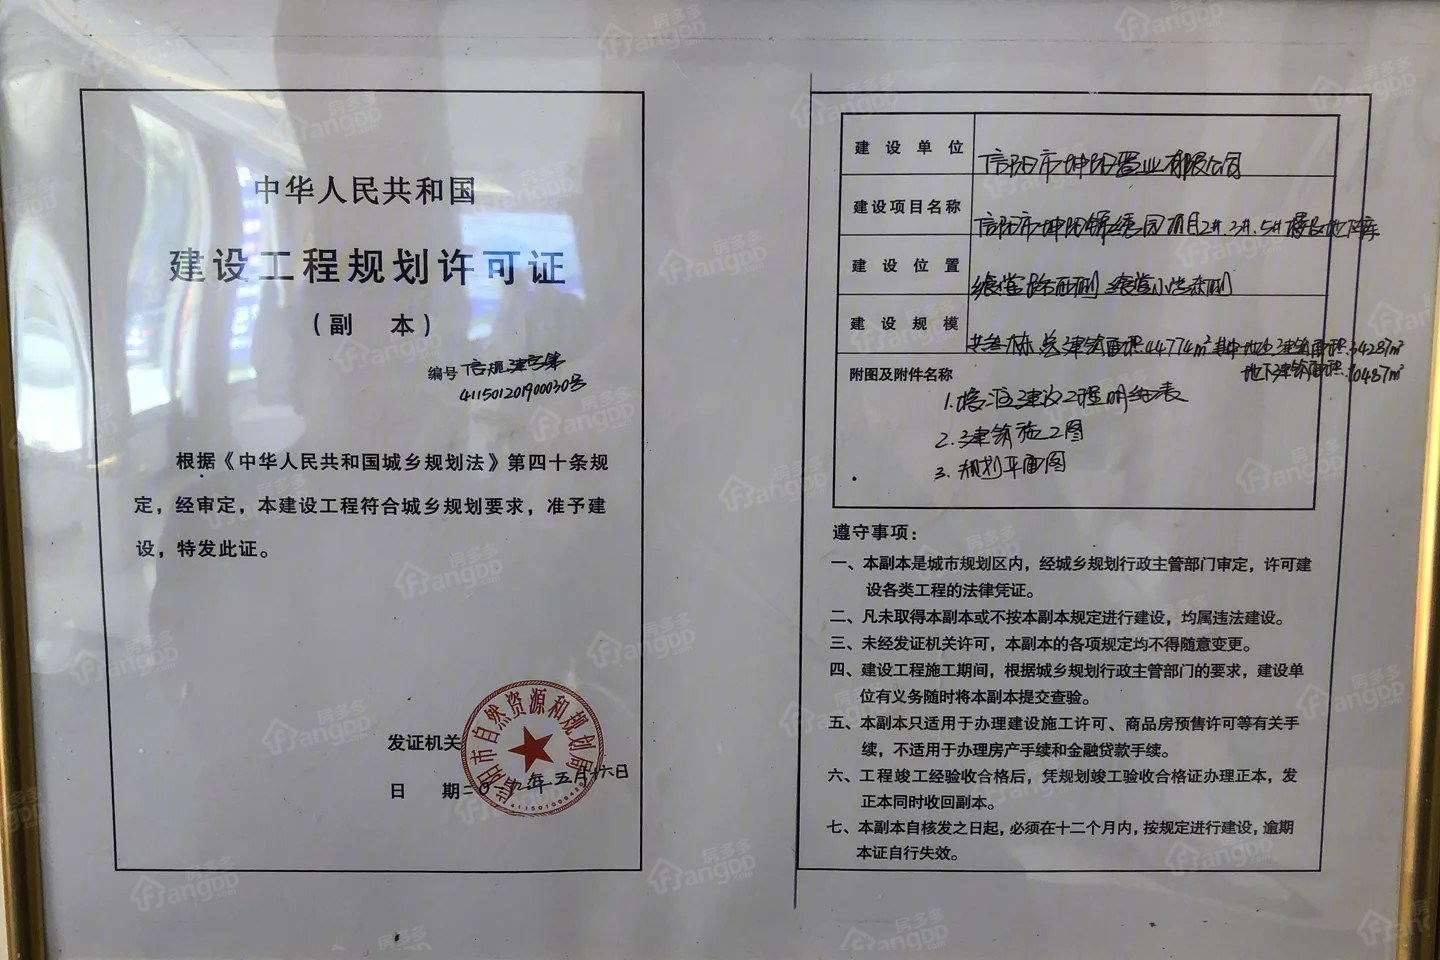 中华人民共和国
建设工程规划许可证
（副 本）
编号 信规建字第
411501201900030号
根据《中华人民共和国城乡规划法》第四十条规
定，经审定，本建设工程符合城乡规划要求，准予建
设，特发此证。
发证机关
信阳市自然资源和规划局
日 期 二〇一九年五月十六日
建设单位 信阳市坤阳置业有限公司
建设项目名称 信阳市坤阳锦绣园项目2#.3#.5#楼及地下库
建设位置 路西侧 小学东侧
建设规模 共叁栋 总建筑面积44774m² 其中地上建筑面积:34287m²
地下建筑面积:10487m²
附图及附件名称
1.核准建设工程明细表
2.建筑施工图
3.规划平面图
遵守事项：
一、本副本是城市规划区内，经城乡规划行政主管部门审定，许可建
设各类工程的法律凭证。
二、凡未取得本副本或不按本副本规定进行建设，均属违法建设。
三、未经发证机关许可，本副本的各项规定均不得随意变更。
四、建设工程施工期间，根据城乡规划行政主管部门的要求，建设单
位有义务随时将本副本提交查验。
五、本副本只适用于办理建设施工许可、商品房预售许可等有关手
续，不适用于办理房产手续和金融贷款手续。
六、工程竣工经验收合格后，凭规划竣工验收合格证办理正本，发
正本同时收回副本。
七、本副本自核发之日起，必须在十二个月内，按规定进行建设，逾期
本证自行失效。
房多多
FangDD